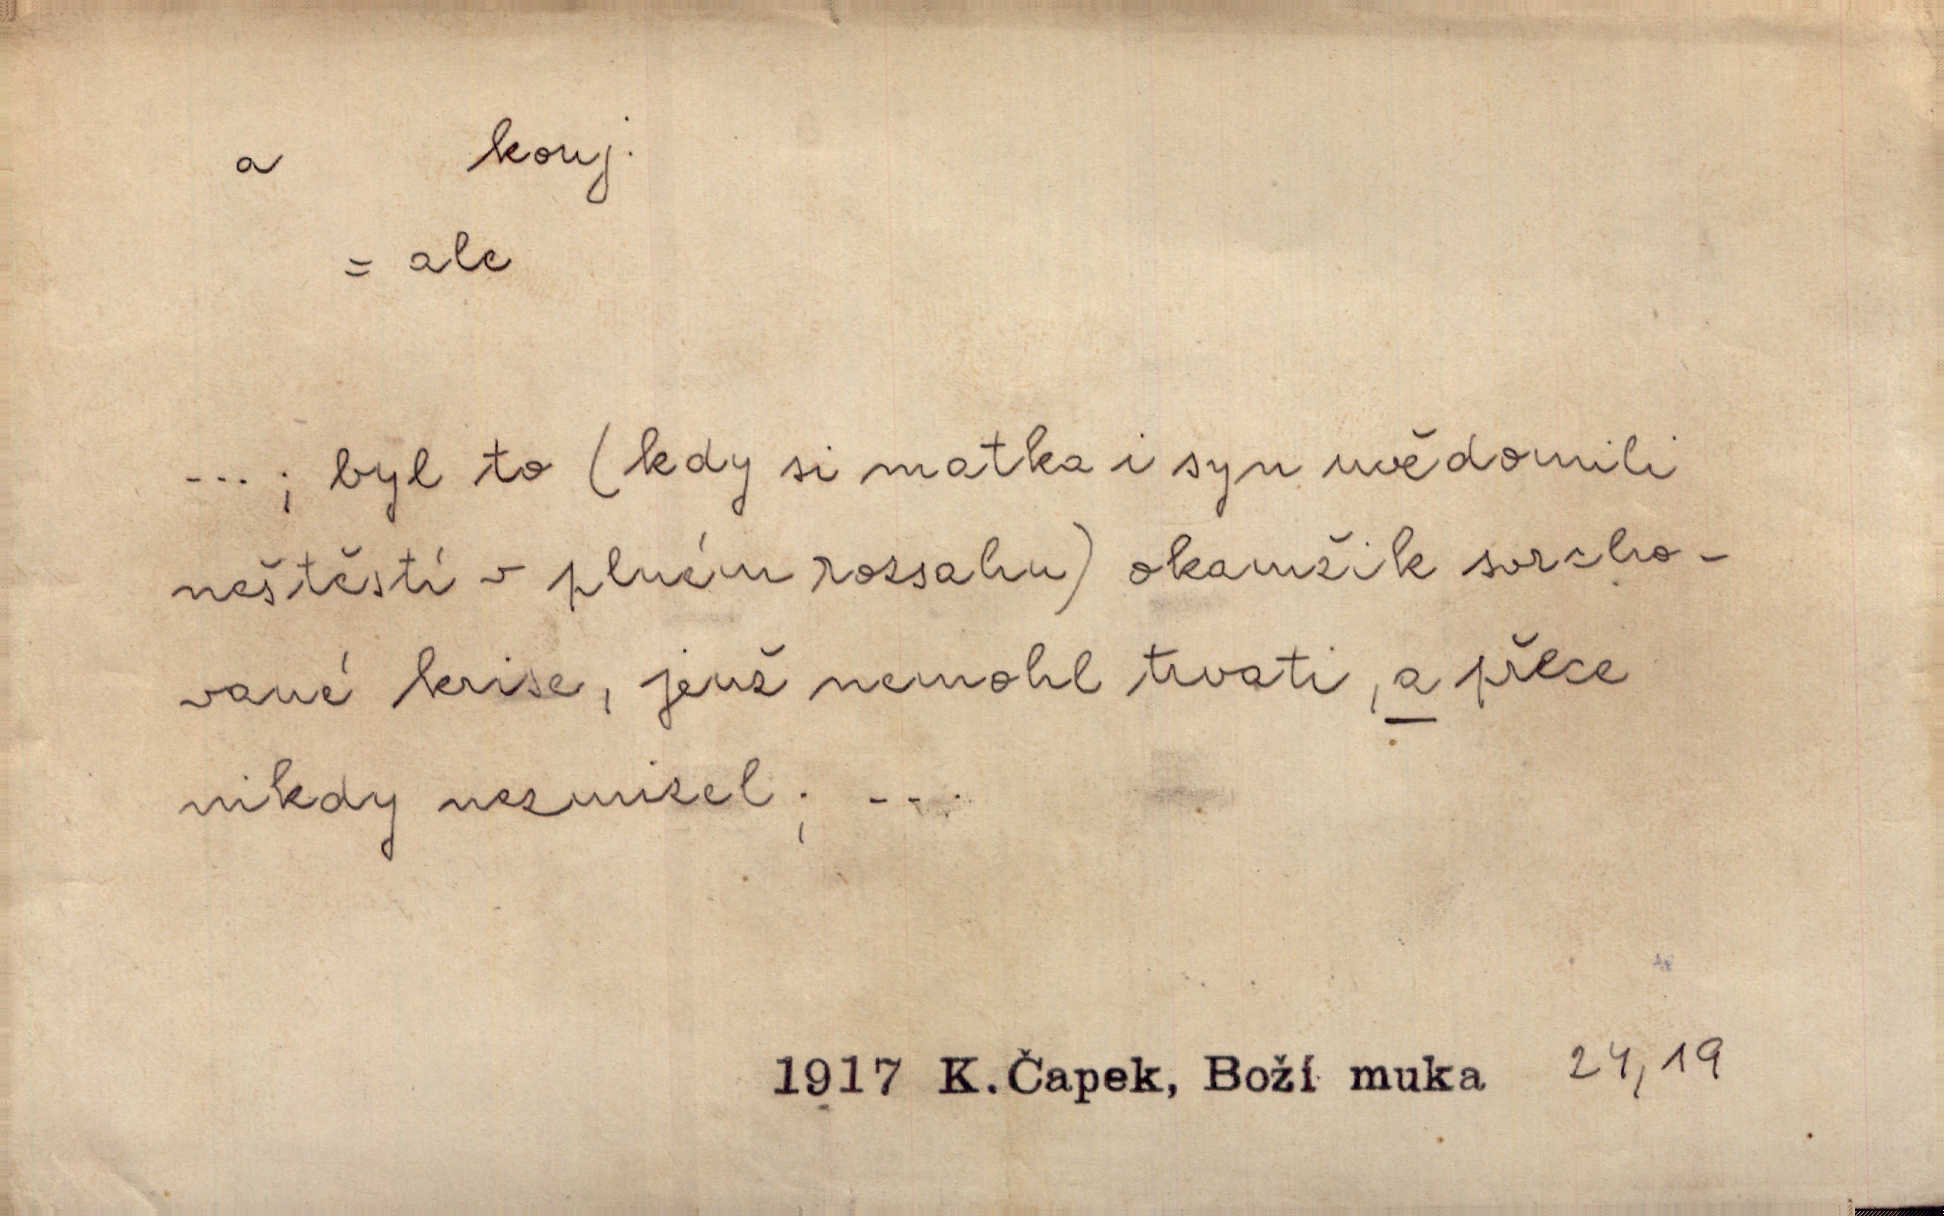 a konj.
= ale
---; byl to (kdy si matka i syn uvědomili
neštěstí v plném rozsahu) okamžik svrcho-
vané krise, jenž nemohl trvati, a přece
nikdy nezmizel; ---.
1917 K.Čapek, Boží muka 24,19